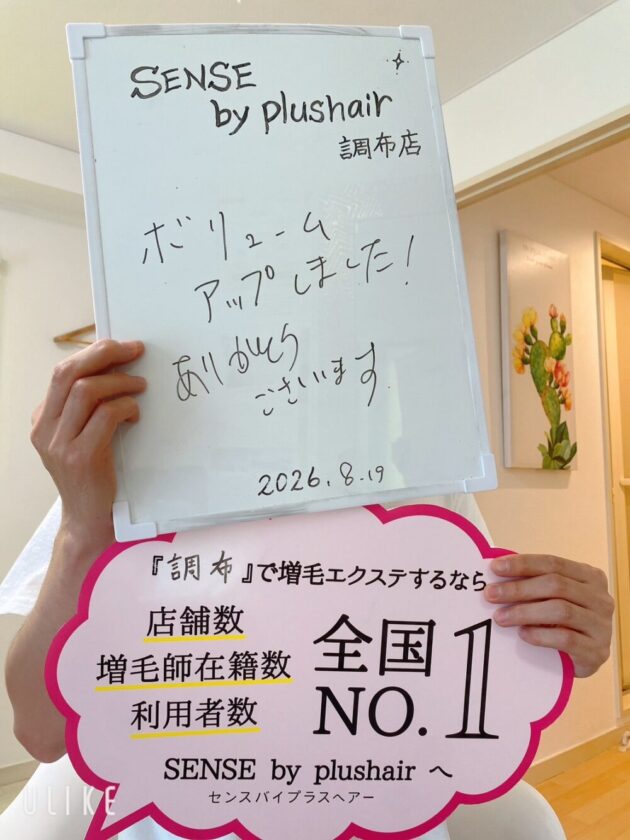 SENSE
by plushair
調布店
ボリューム
アップしました!
ありがとう
ございます
2026.8.19
『調布』で増毛エクステするなら
店舗数
増毛師在籍数
利用者数
全国
NO.1
SENSE by plushair へ
センスバイプラスヘアー
ULIKE